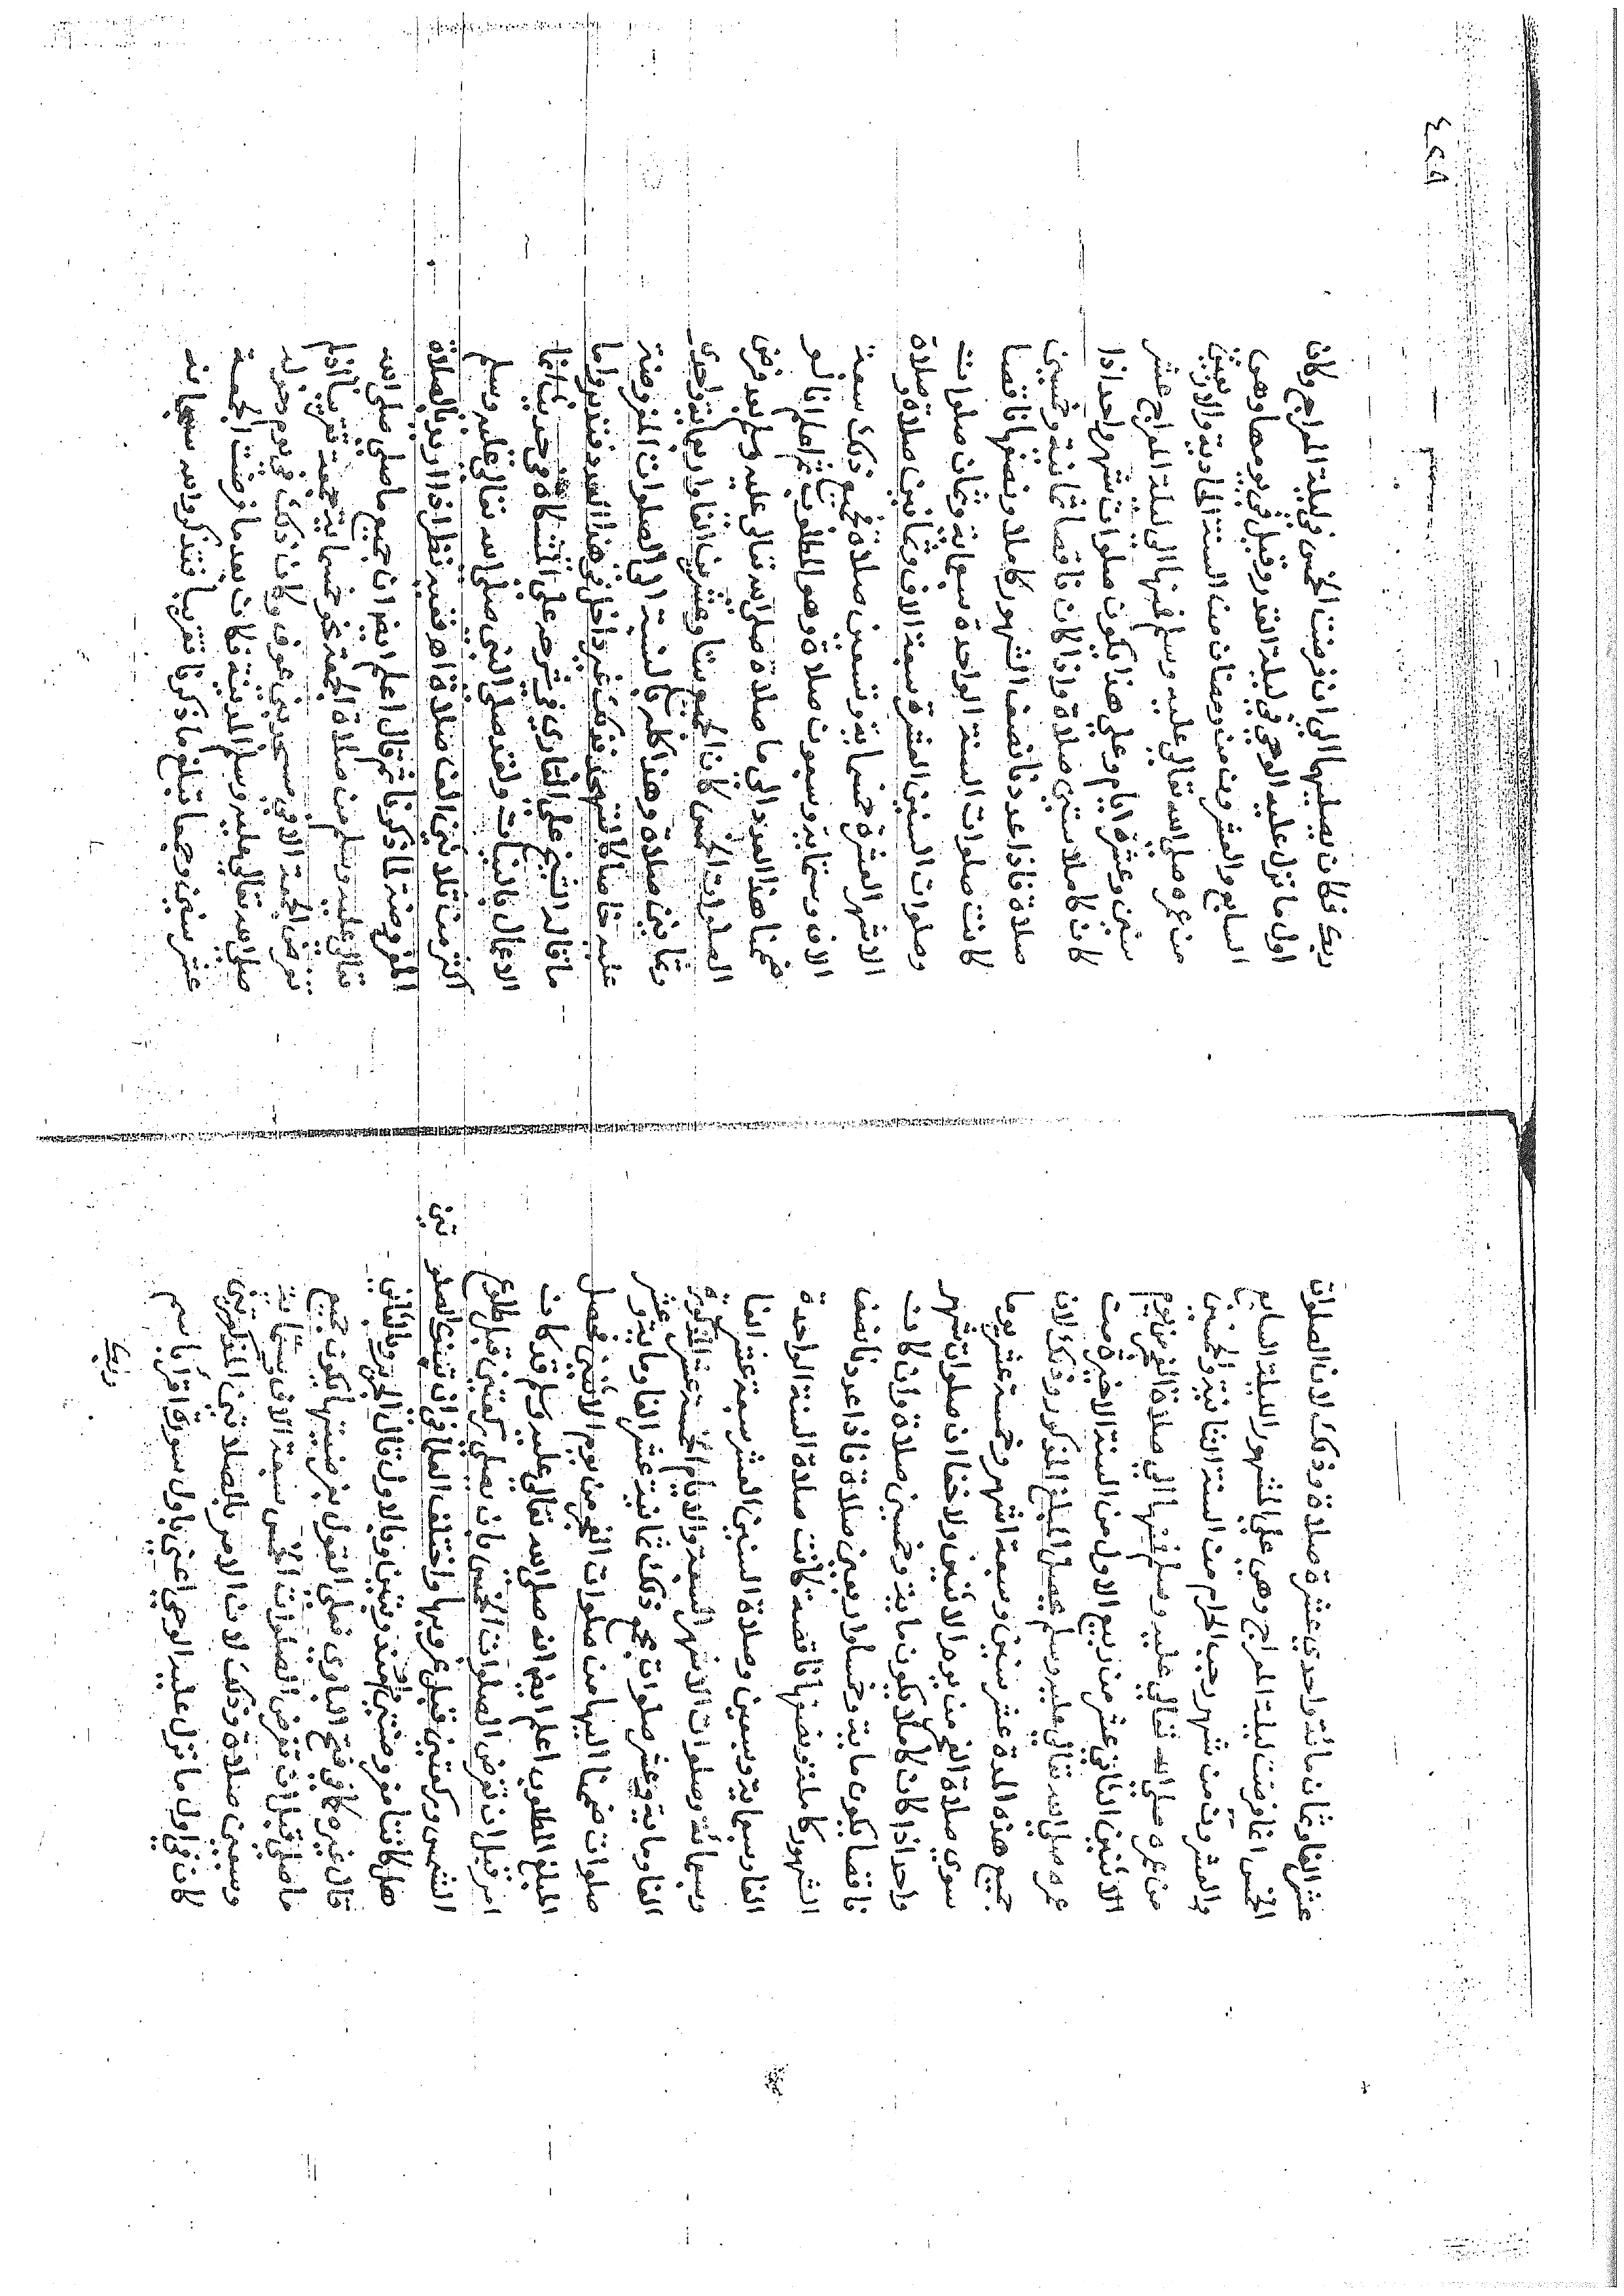 عشر الفا وثمان مائة واحدى عشرة صلاة وذلك لان الصلوات
الخمس انما فرضت ليلة المعراج وهى على المشهور الليلة السابع
والعشرون من شهر رجب الحرام من السنة الثانية والخمسين
من عمره صلى الله تعالى عليه وسلم فمنها الى صلاة الفجر من يوم
الاثنين الثاني عشر من ربيع الاول من السنة الاخيرة من
عمره صلى الله تعالى عليه وسلم يحصل المبلغ المذكور وذلك لان
جميع هذه المدة عشر سنين وسبعة اشهر وخمسة عشر يوما
سوى صلاة الفجر من يوم الاثنين ولا خفا ان صلوات شهر
واحد اذا كان كاملا يكون مائة وخمسين صلاة وان كان
ناقصا يكون مائة وخمسا واربعين صلاة فاذا عددنا نصف
الشهور كاملة ونصفها ناقصة كانت صلاة السنة الواحدة
الفا وسبعمائة وسبعين وصلاة السنين العشر سبعة عشر الفا
وسبعمائة وصلوات الاشهر السبعة والايام الخمسة عشر المذكورة
الفا ومائة وعشر صلوات مجموع ذلك ثمانية عشر الفا ومائة وعشر
صلوات ضممنا اليها من صلوات الفجر من يوم الاثنين فحصل
المبلغ المطلوب اعلم ايضا انه صلى الله تعالى عليه وسلم قد كان
امر قبل ان تفرض الصلوات الخمس بان يصلي ركعتين قبل طلوع
الشمس وركعتين قبل غروبها واختلف العلما في ان تينك الصلوتين
هل كانتا مفروضتين او مندوبتين وبالاول قال الجزرى وبالثاني
قال غيره كما في فتح البارى فعلى القول بفرضيتهما يكون جميع
ما صلى قبل ان تفرض الصلوات الخمس سبعة الاف وستمائة
وسبعين صلاة وذلك لان الامر بالصلاتين المذكورتين
كان في اول ما نزل عليه الوحي اعني باول سورة اقرأ باسم
ربك
٤٤٩
ربك فكان يصليها الى ان فرضت الخمس في ليلة المعراج وكان
اول ما نزل عليه الوحي في ليلة القدر وقيل في يومها وهى
السابع والعشرون من رمضان من السنة الحادية والاربعين
من عمره صلى الله تعالى عليه وسلم فمنها الى ليلة المعراج عشر
سنين وعشرة ايام وعلى هذا يكون صلوات شهر واحد اذا
كان كاملا ستين صلاة واذا كان ناقصا ثمانية وخمسين
صلاة فاذا عددنا نصف الشهور كاملا ونصفها ناقصا
كانت صلوات السنة الواحدة سبعمائة وثمان صلوات
وصلوات السنين العشرة سبعة الاف وثمانين صلاة وصلاة
الاشهر العشرة خمسمائة وتسعين صلاة فجميع ذلك سبعة
الاف وستمائة وسبعون صلاة وهو المطلوب ثم اعلم انا لو
ضممنا هذا العدد الى ما صلاة صلى الله تعالى عليه وسلم بعد فرض
الصلوات الخمس كان المجموع ستا وعشرين الفا واربعمائة واحدى
وثمانين صلاة وهذا كله بالنسبة الى الصلوات المفروضة
عليه خاصة كالتهجد فذلك غير داخل في هذا العدد فتدبر واما
ما قاله الشيخ على القارى في شرحه على المشكاة في حديث انما
الاعمال بالنيات ولقد صلى النبي صلى الله تعالى عليه وسلم
اكثر من ثلاثين الف صلاة اه ففيه نظر اذا اريد بالصلاة
المفروضة لما ذكرنا ثم قال اعلم ايضا ان جميع ما صلى صلى الله
تعالى عليه وسلم من صلاة الجمعة نحو خمسمائة جمعة تقريبا اذ لم
تفرض الجمعة الا في مسجد بني عوف وكان ذلك في يوم دخوله
صلى الله تعالى عليه وسلم المدينة فكان بعد ما فرضت الجمعة
عشر سنين وجمعها تبلغ ما ذكرنا تقريبا فتذكر والله سبحانه